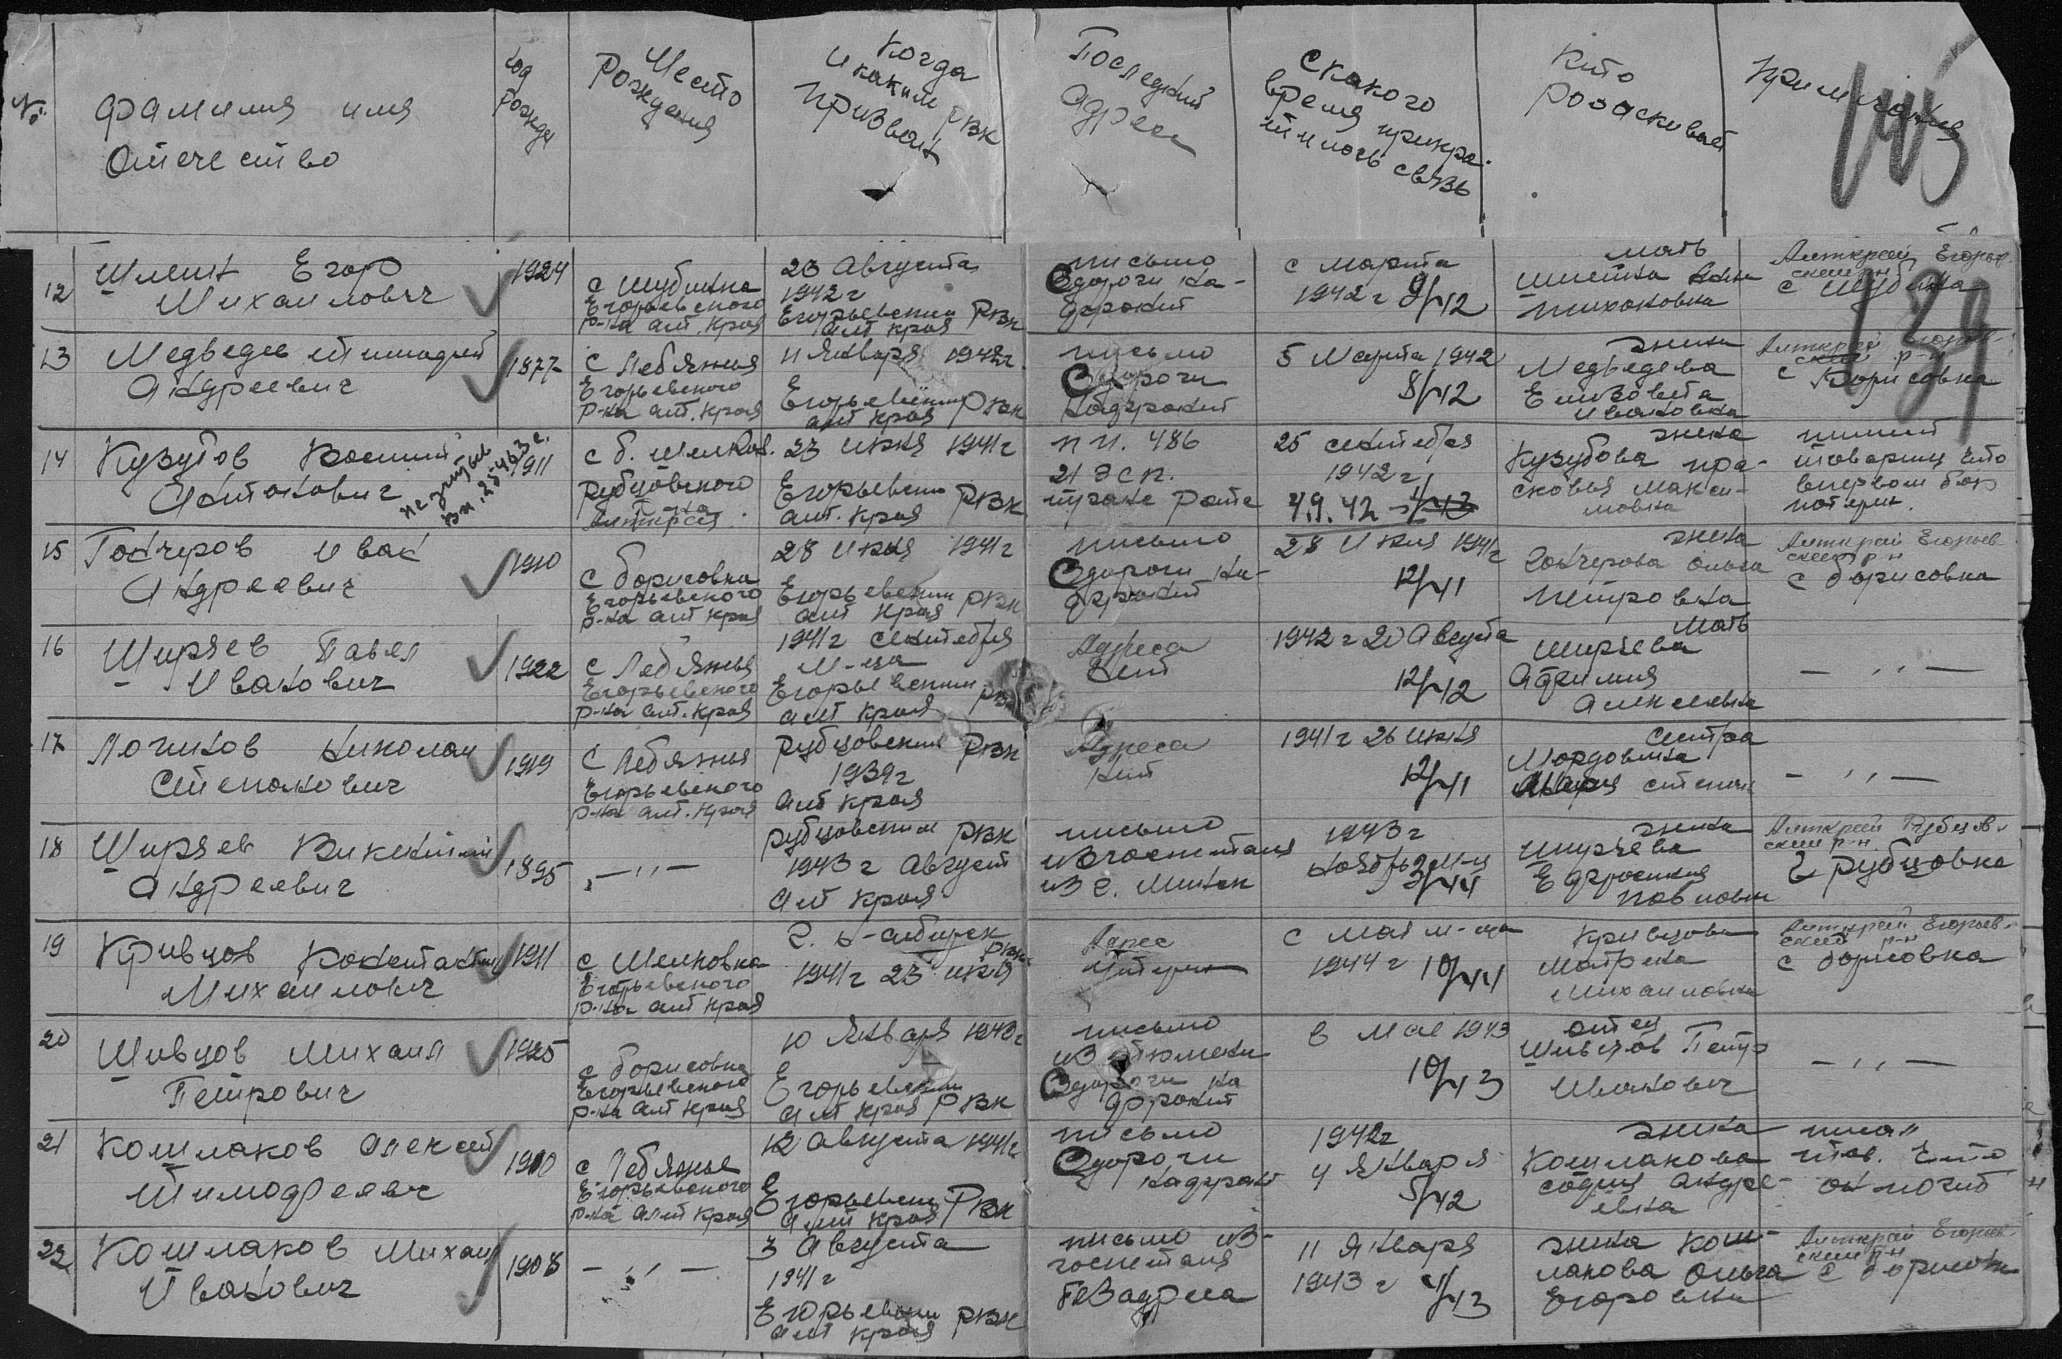 №
фамилия имя
отчество
год
рожде
Место
Рождения
Когда
и каким РВК
призван
Последний
адрес
с какого
время прикра-
тилось связь
Кто
розыскивает
Примечание
145
12 Шлейн Егор
Михайлович
1924
с Шубинка
Егорьевского
р-на алт. края
23 Августа
1942 г
Егорьевским РВК
алт края
письмо
с дороги на
фронт
с марта
1942 г 9/42
мать
Тихоновна
Алткрай Егорьев
ский р-н
с Шубинка
139
13 Медведев
Андреевич
с Лебяжия
Егорьевского
р-на алт. края
11 Января 1942г.
Егорьевским РВК
алт края
письмо
с дороги
на фронт
5 Марта 1942
8/42
жена
Медведева
Елизовета
Ивановна
Алткрай Егорьев-
ский р-н
с Борисовка
14 Кузубов
Антонович
1911
Рубцовского
р-на
Алткрая
23 июня 1941г
Егорьевским РВК
алт. края
п п. 486
21 З С П.
25 сентября
1942 г
4.9.42
жена
Кузубова Пра-
сковья Макси-
мовна
пишит
товарищ что
впервом бою
потерян.
15 Гончеров Иван
Андреевич
1910
с борисовка
Егорьевского
р-на алт края
28 июня 1941г
Егорьевским РВК
алт края
письмо
с дороги на
фронт
28 июня 1941г
12/41
жена
Гончерова Ольга
Петровна
Алткрай Егорьев
ский р-н
с борисовка
16 Ширяев Павел
Иванович
1922
с Лебяжья
Егорьевского
р-на алт. края
1941г сентября
м-ца
Егорьевским РВК
алт края
Адреса
нет
1942 г 20 Августа
12/42
Мать
Ширяева
Алексеевна
— ,, —
17 Логинов Николай
Степанович
1919
с Лебяжья
Егорьевского
р-на алт. края
Рубцовским РВК
1939г
алт края
Адреса
нет
1941г 26 июня
12/41
сестра
степан
— ,, —
18 Ширяев Викентий
Андреевич
1895
— ,, —
Рубцовским РВК
1943 г Август
алт края
письмо
из госпиталя
1943г
ноябрь м-ц
жена
Ширяева
Павловна
Алткрай Рубцов-
ский р-н
г Рубцовка
19 Кривцов Константин
Михайлович
1911
с Шелковка
Егорьевского
р-на алт края
г. Н-сибирск
РВК
1941г 23 июня
Адрес
утерян
с мая м-ца
1944 г 10/44
Кривцова
Матрена
Михайловна
Алткрай Егорьев-
ский р-н
с борисовка
20 Шевцов Михаил
Петрович
1925
с борисовка
Егорьевского
р-на алт края
10 Января 1943г
Егорьевским
алт края РВК
письмо
с дороги на
фронт
в Мае 1943
10/43
отец
Шевцов Петр
Иванович
— ,, —
21 Кошлаков Алексей
Тимофеевич
1900
с Лебяжье
Егорьевского
р-на алт края
12 августа 1941г
Егорьевским РВК
алт края
письмо
с дороги
на фронт
1942г
4 Января
5/42
жена
Кошлакова
София Андре-
евна
писал
тов. что
он погиб
22 Кошлаков Михаил
Иванович
1908
— ,, —
3 Августа
1941 г
Егорьевским РВК
алт края
письмо из
госпиталя
без адреса
11 Января
1943 г 4/43
жена Кош-
лакова Ольга
Егоровна
Алткрай Егорьев-
ский р-н
с борисовка